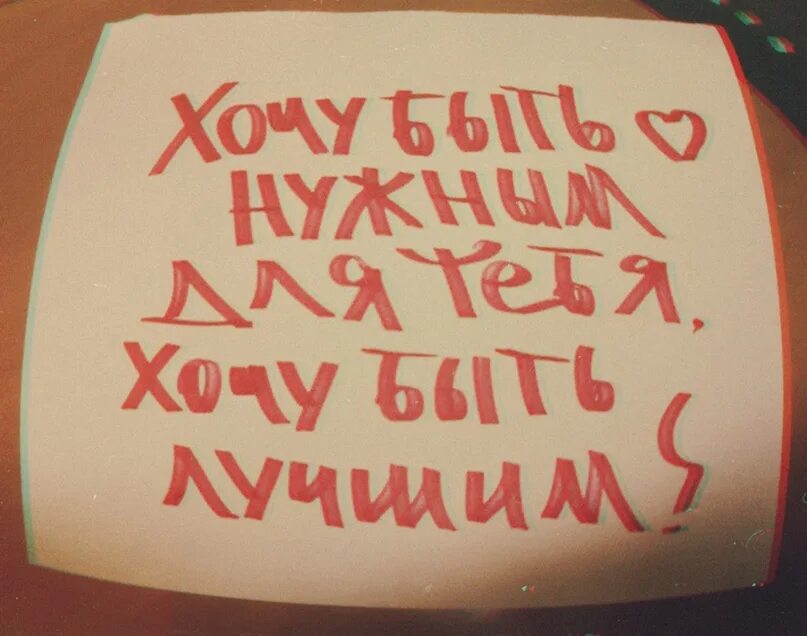 ХОЧУ БЫТЬ ♡
НУЖНЫМ
ДЛЯ ТЕБЯ,
ХОЧУ БЫТЬ
ЛУЧШИМ!